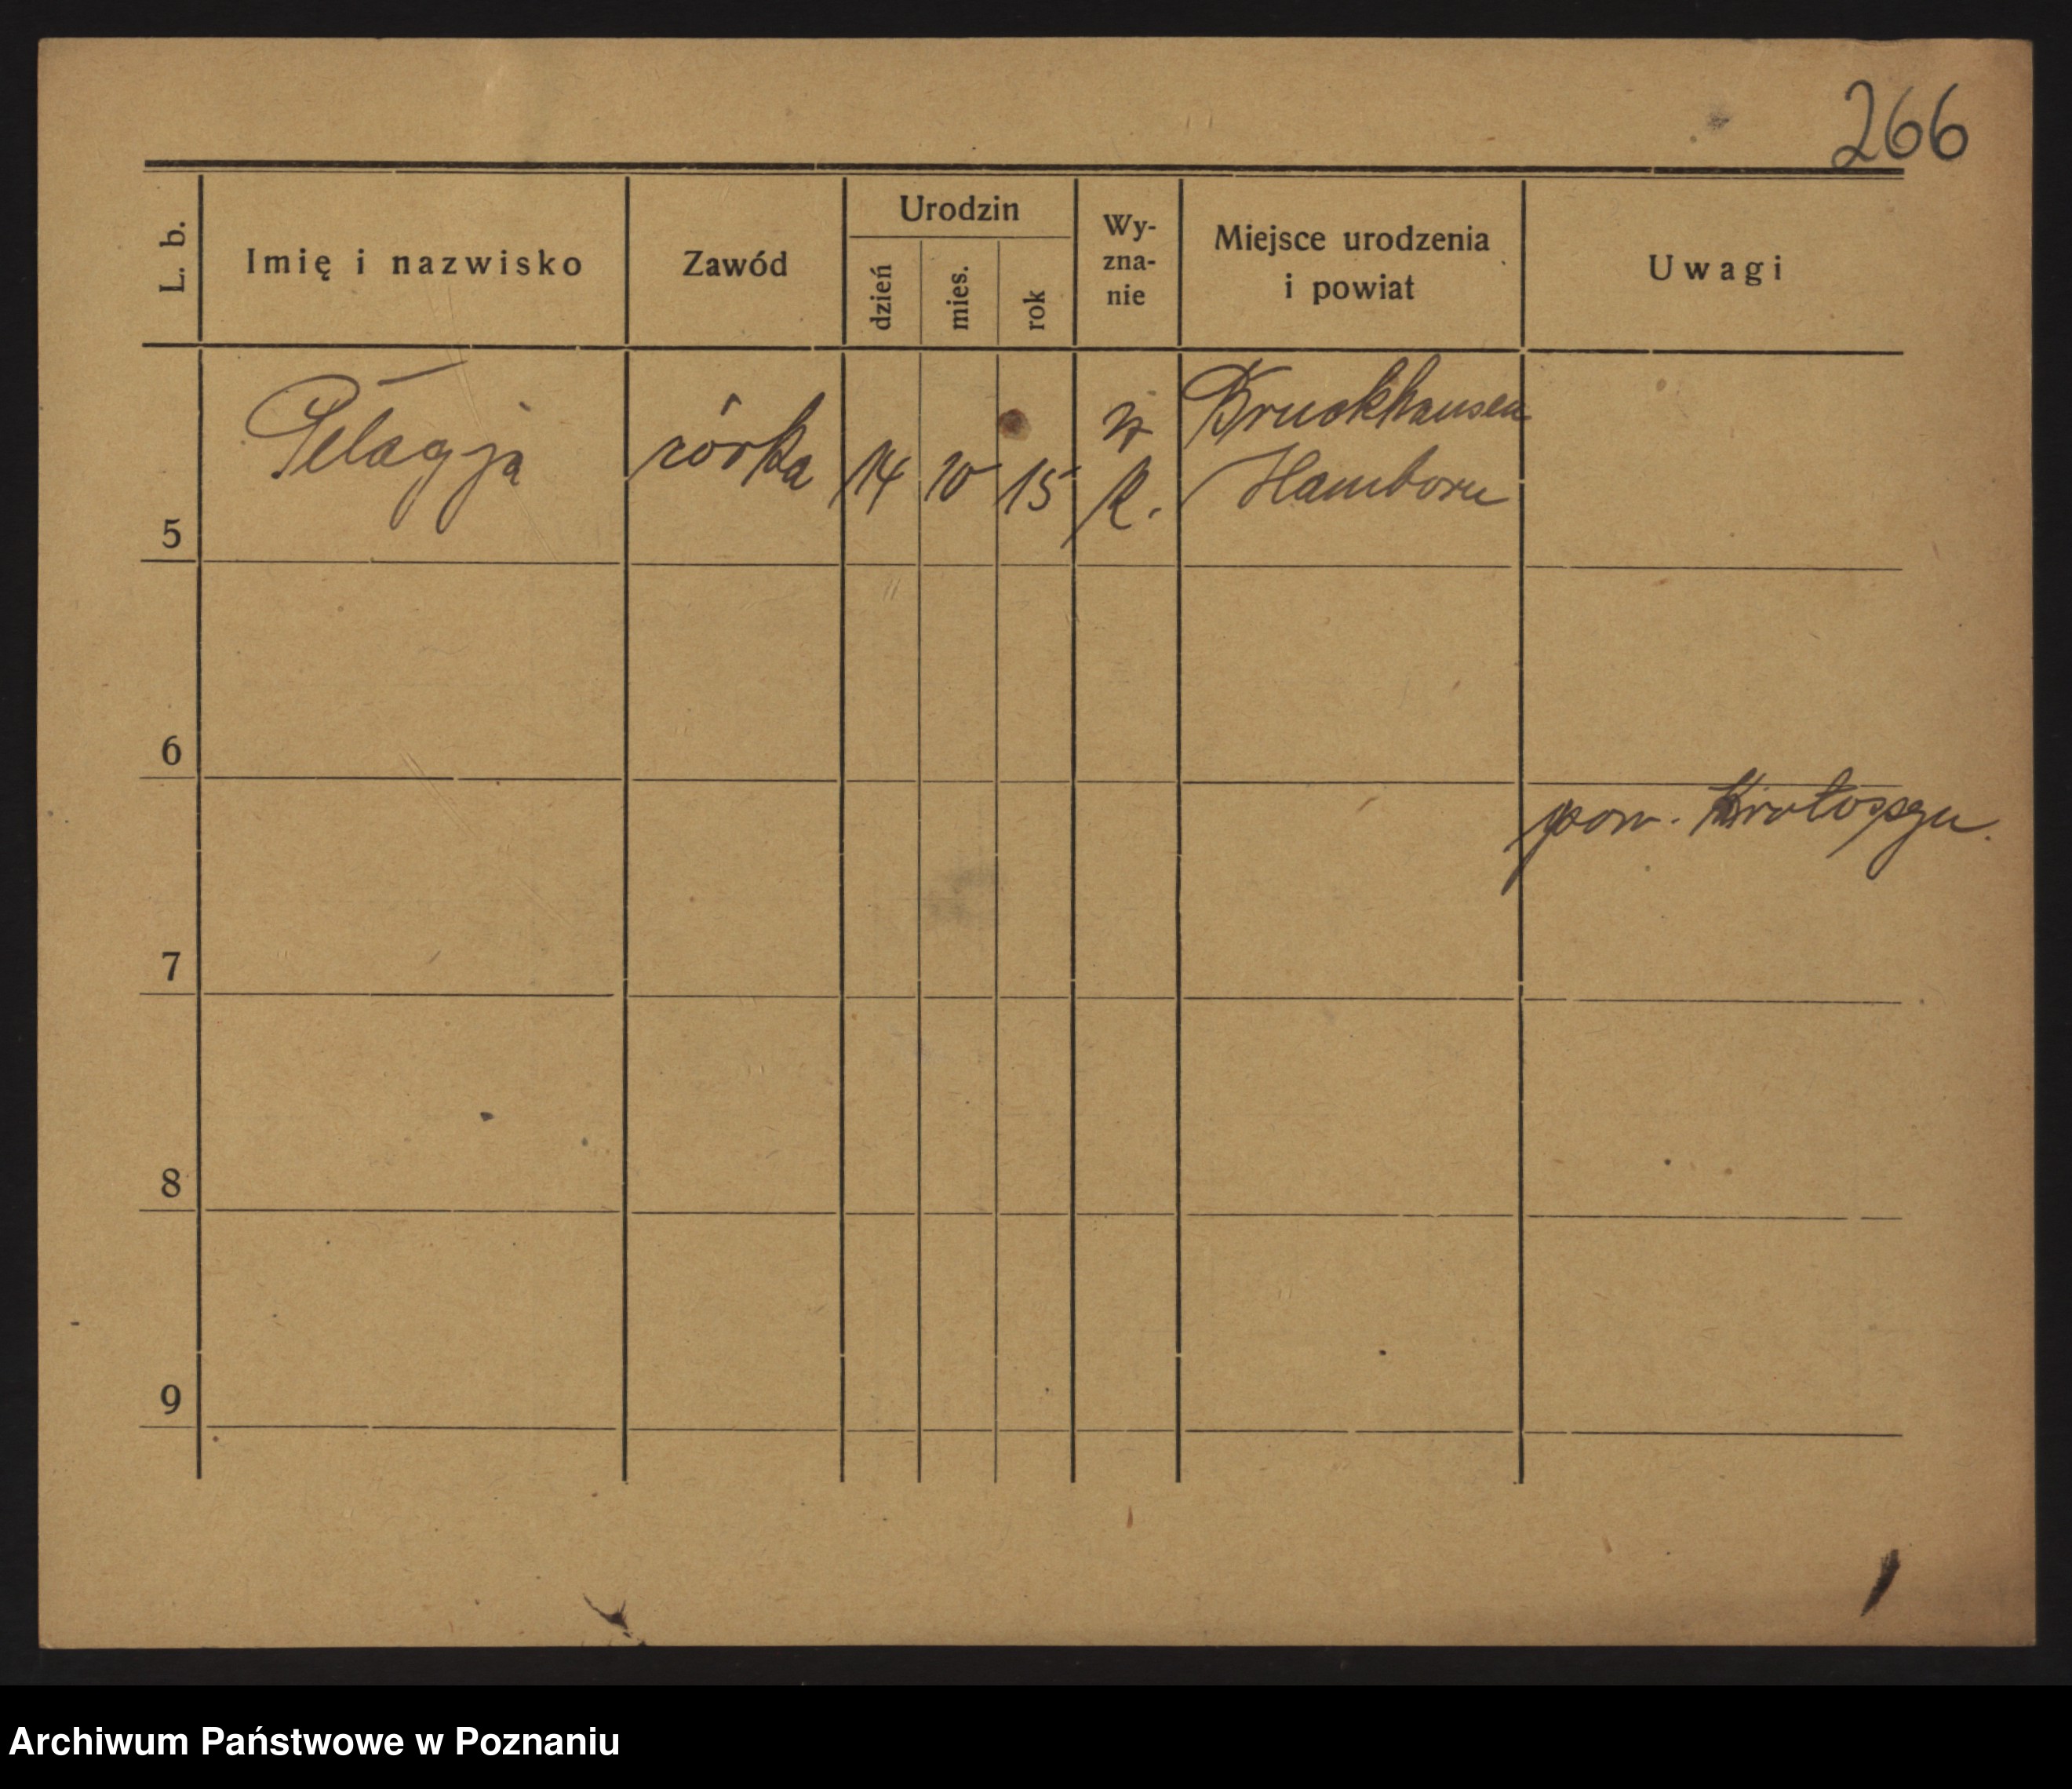 266
L. b.
Imię i nazwisko
Zawód
Urodzin
dzień
mies.
rok
Wy-
zna-
nie
Miejsce urodzenia
i powiat
Uwagi
5
Pelagja
córka
14
10
15
rz
k.
Bruckhausen
Hamborn
6
pow. Krotoszyn.
7
8
9
Archiwum Państwowe w Poznaniu